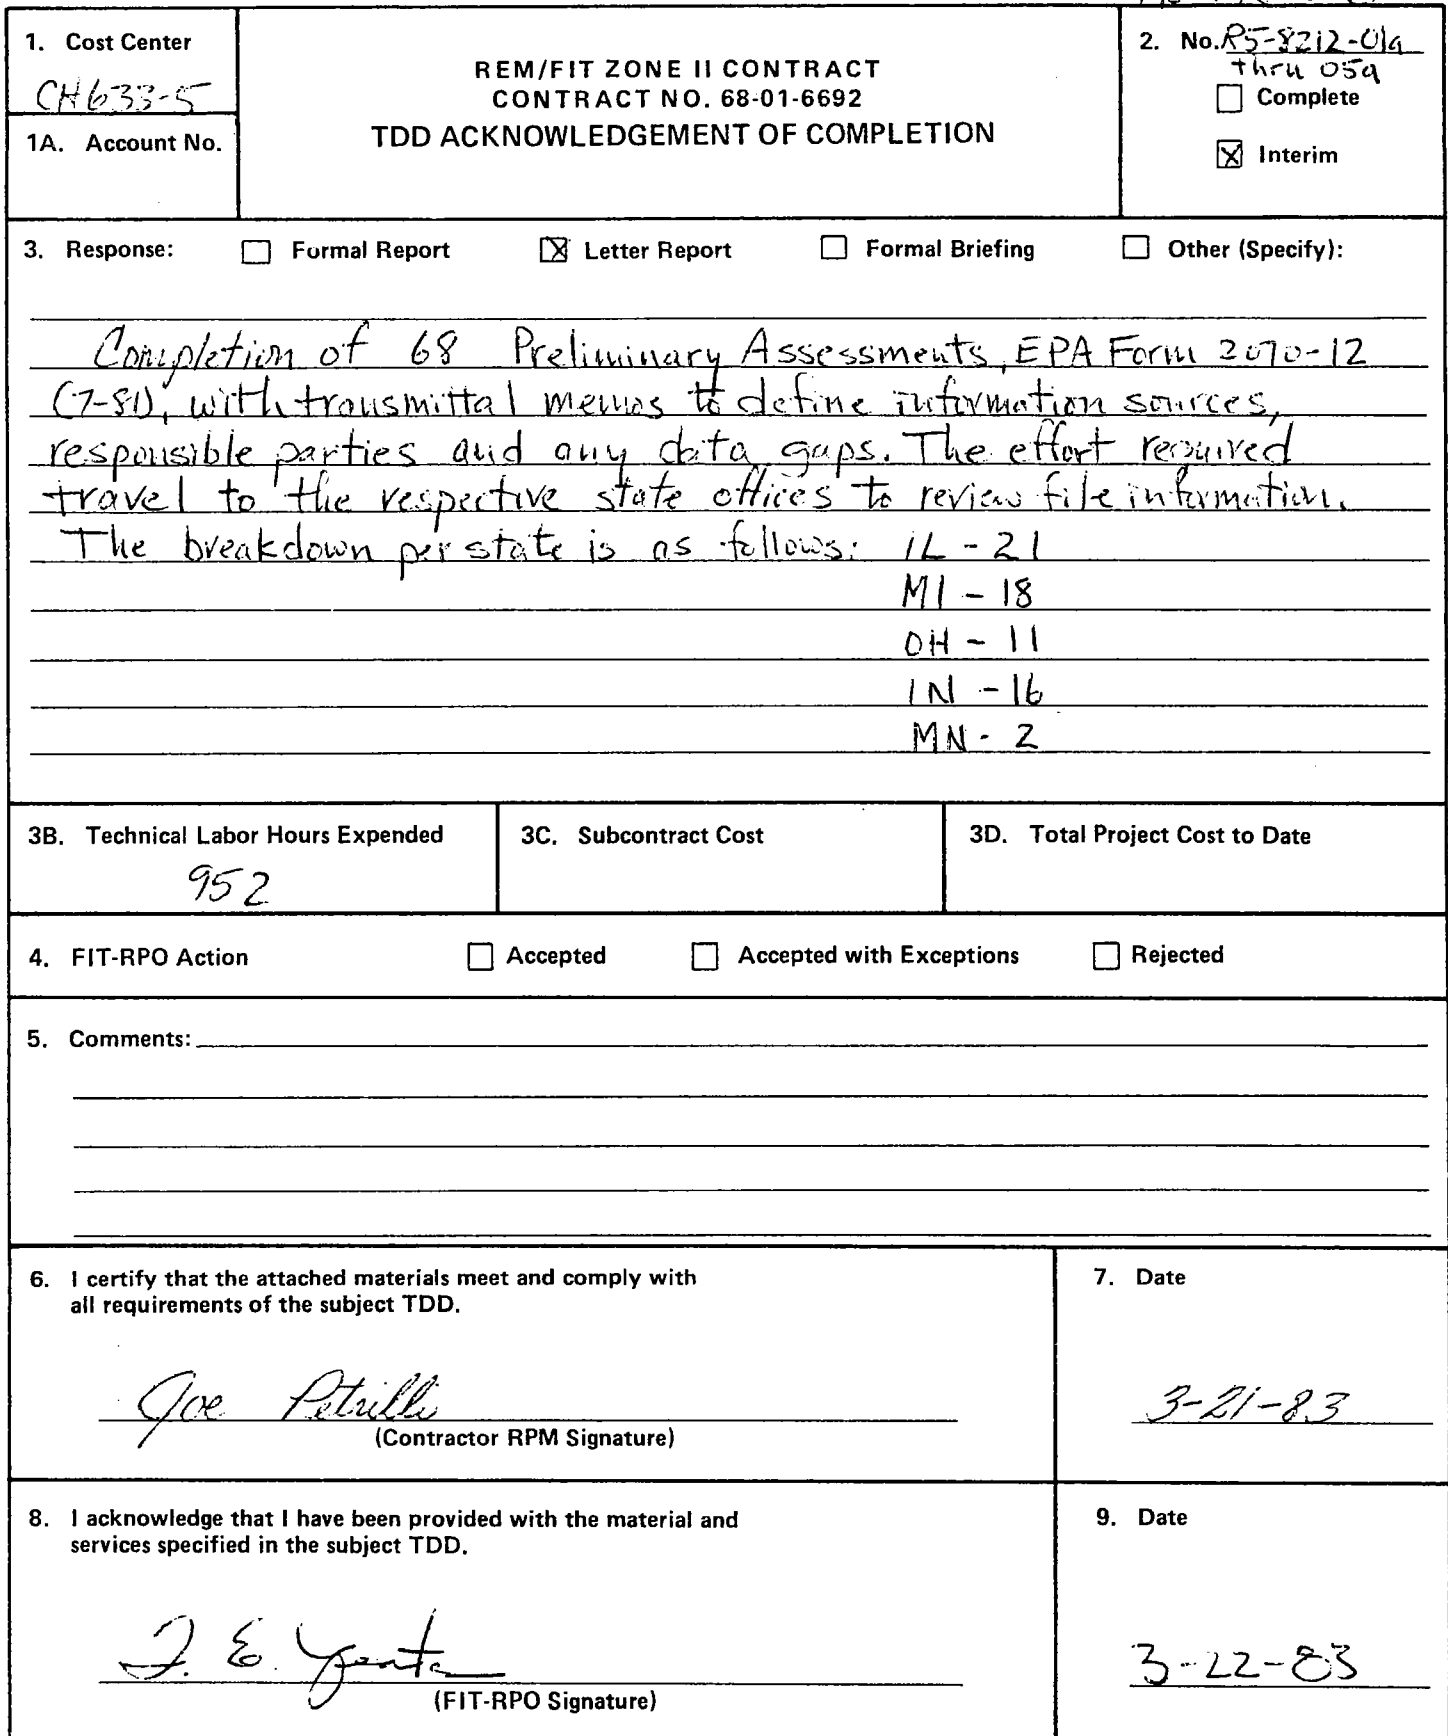 1. Cost Center
CH633-5
1A. Account No.
REM/FIT ZONE II CONTRACT
CONTRACT NO. 68-01-6692
TDD ACKNOWLEDGEMENT OF COMPLETION
2. No. R5-8212-01a
thru 05a
Complete
Interim
3. Response: Formal Report Letter Report Formal Briefing Other (Specify):
Completion of 68 Preliminary Assessments, EPA Form 2070-12
(7-81), with transmittal memos to define information sources,
responsible parties and any data gaps. The effort required
travel to the respective state offices to review file information.
The breakdown per state is as follows: IL - 21
MI - 18
OH - 11
IN - 16
MN - 2
3B. Technical Labor Hours Expended
952
3C. Subcontract Cost
3D. Total Project Cost to Date
4. FIT-RPO Action Accepted Accepted with Exceptions Rejected
5. Comments:
6. I certify that the attached materials meet and comply with
all requirements of the subject TDD.
Joe Petrilli
(Contractor RPM Signature)
7. Date
3-21-83
8. I acknowledge that I have been provided with the material and
services specified in the subject TDD.
(FIT-RPO Signature)
9. Date
3-22-83